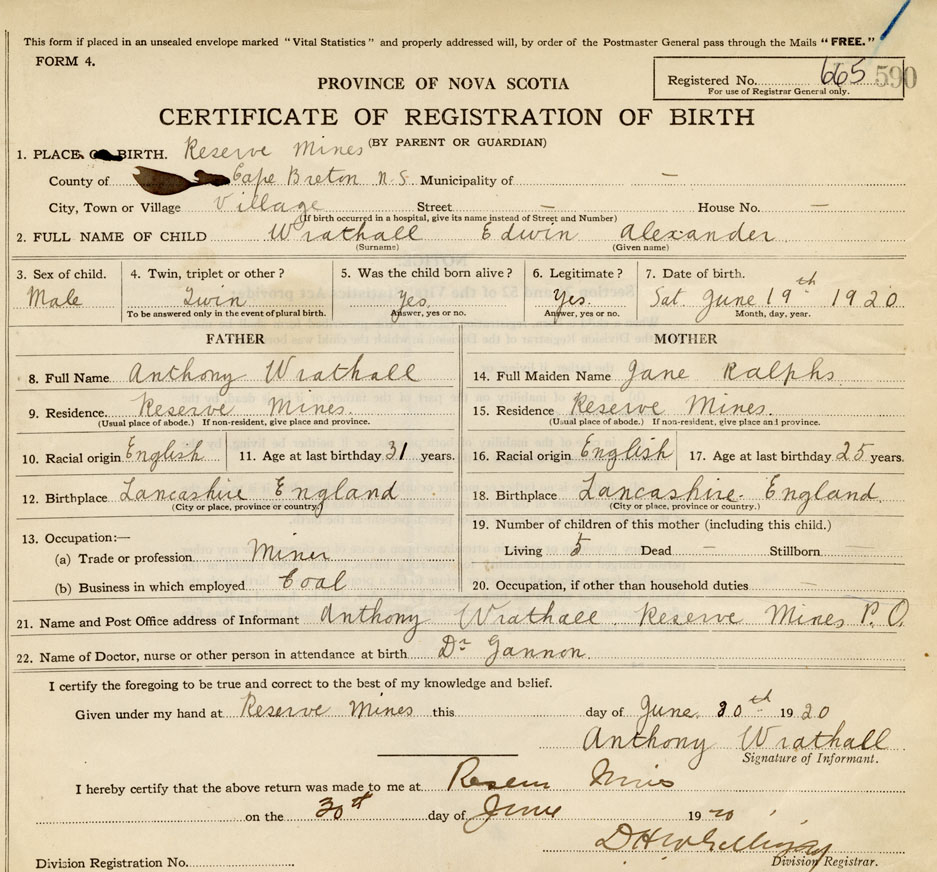 This form if placed in an unsealed envelope marked "Vital Statistics" and properly addressed will, by order of the Postmaster General pass through the Mails "FREE."
FORM 4.
Registered No. 665 590
For use of Registrar General only.
PROVINCE OF NOVA SCOTIA
CERTIFICATE OF REGISTRATION OF BIRTH
(BY PARENT OR GUARDIAN)
1. PLACE OF BIRTH. Reserve Mines
County of Cape Breton N.S. Municipality of —
City, Town or Village Village Street — House No. —
(If birth occurred in a hospital, give its name instead of Street and Number)
2. FULL NAME OF CHILD Wrathall Edwin Alexander
(Surname) (Given name)
3. Sex of child. 4. Twin, triplet or other? 5. Was the child born alive? 6. Legitimate? 7. Date of birth.
Male Twin Yes. Yes. Sat. June 19th 1920
To be answered only in the event of plural birth. Answer, yes or no. Answer, yes or no. Month, day, year.
FATHER MOTHER
8. Full Name Anthony Wrathall 14. Full Maiden Name Jane Ralphs
9. Residence. Reserve Mines. 15. Residence Reserve Mines.
(Usual place of abode.) If non-resident, give place and province. (Usual place of abode.) If non-resident, give place and province.
10. Racial origin English 11. Age at last birthday 31 years. 16. Racial origin English 17. Age at last birthday 25 years.
12. Birthplace Lancashire England 18. Birthplace Lancashire England.
(City or place, province or country.) (City or place, province or country.)
13. Occupation:— 19. Number of children of this mother (including this child.)
(a) Trade or profession Miner Living 5 Dead — Stillborn —
(b) Business in which employed Coal 20. Occupation, if other than household duties —
21. Name and Post Office address of Informant Anthony Wrathall. Reserve Mines P.O.
22. Name of Doctor, nurse or other person in attendance at birth Dr Gannon.
I certify the foregoing to be true and correct to the best of my knowledge and belief.
Given under my hand at Reserve Mines this day of June. 30th 1920
Anthony Wrathall
Signature of Informant.
I hereby certify that the above return was made to me at Reserve Mines
on the 30th day of June 1920
Division Registrar.
Division Registration No.